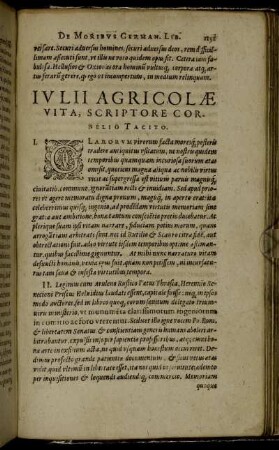 DE MORIBVS GERMAN. LIB.
uersare. Securi aduersus homines, securi aduersus deos, rem difficilli-
mam assecuti sunt, ut illis ne uoto quidem opus sit. Cætera iam fa-
bulosa. Hellusios & Oxionas ora hominum uultusq́, corpora atq́, ar-
tus ferarum gerere, quod ego ut incompertum, in medium relinquam.
IVLII AGRICOLÆ
VITA, SCRIPTORE COR-
NELIO TACITO.
I.
CLARORVM uirorum facta moresq́, posteris
tradere antiquitus usitatum, ne nostris quidem
temporibus quamquam incuriosa suorum ætas
omisit, quoties magna aliqua ac nobilis uirtus
uicit ac supergressa est uitium paruis magnisq́,
ciuitatib. commune, ignorantiam recti & inuidiam. Sed apud prio-
res ut agere memoratu digna pronum, magisq́, in aperto erat: ita
celeberrimus quisq́, ingenio, ad prodendam uirtutis memoriam sine
gratia aut ambitione, bonæ tantum conscientiæ precio ducebatur. Ac
plerique suam ipsi uitam narrare, fiduciam potius morum, quam
arrogantiam arbitrati sunt. nec id Rutilio & Scauro citra fidē, aut
obtrectationi fuit. adeo uirtutes iisdem temporibus optimè æstiman-
tur, quibus facillimè gignuntur. At mihi nunc narraturo uitam
defuncti hominis, uenia opus fuit:
tam sæua & infesta uirtutibus tempora.
II. Legimus cum Aruleno Rustico Pætus Thrasea, Herennio Se-
necioni Priscus Heluidius laudati essent, capitale fuisse: neq́, in ipsos
modo auctores, sed in libros quoq́, eorum sæuitum: delegato Trium-
uiris ministerio, ut monumenta clarissimorum ingeniorum
in comitio ac foro urerentur. Scilicet illo igne uocem Po. Rom.
& libertatem Senatus & conscientiam generis humani aboleri ar-
bitrabantur, expulsis insuper sapientiæ professoribus, atq́, omni bo-
na arte in exilium acta, ne quid usquam honestum occurreret. De-
dimus profectò grande patientiæ documentum, & sicut uetus ætas
uidit quid ultimum in libertate esset, ita nos quid in seruitute, adempto
per inquisitiones & loquendi audiendiq́, commercio. Memoriam
quoque